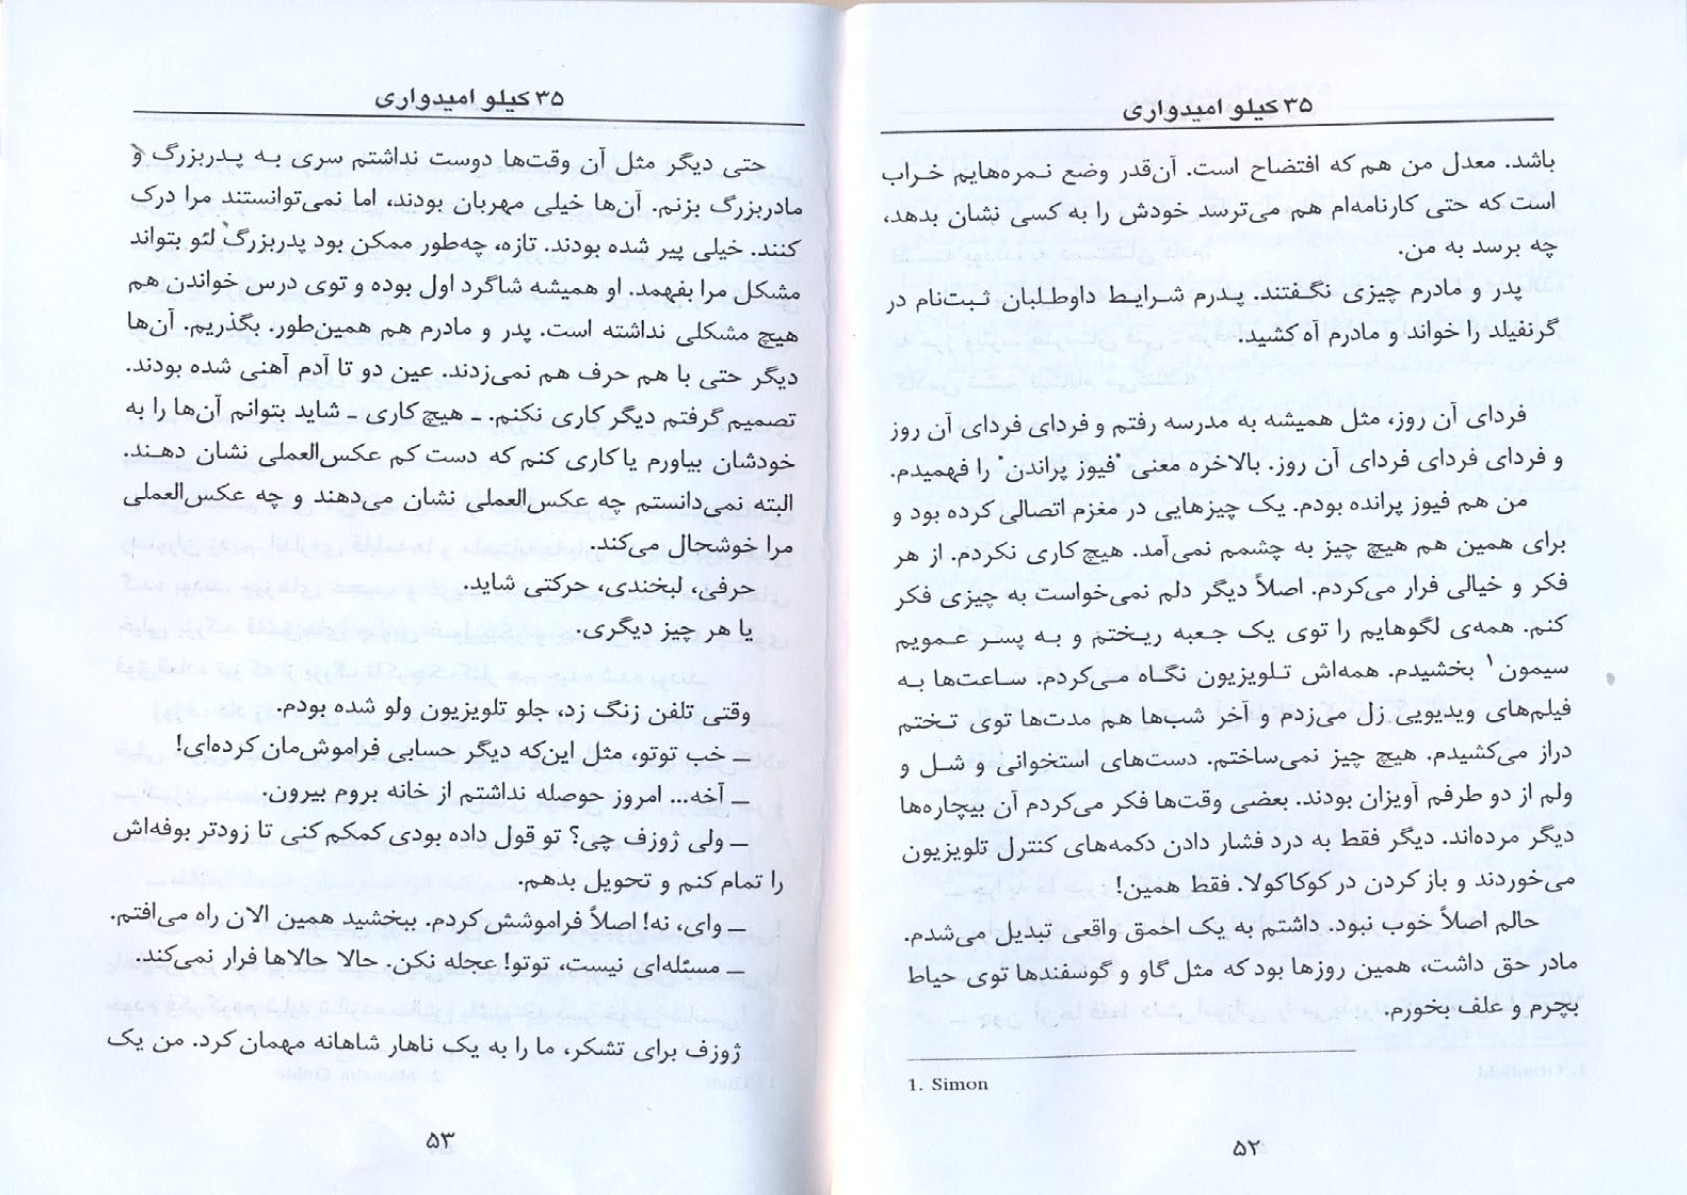 ۳۵ کیلو امیدواری
باشد. معدل من هم که افتضاح است. آن‌قدر وضع نمره‌هایم خراب
است که حتی کارنامه‌ام هم می‌ترسد خودش را به کسی نشان بدهد،
چه برسد به من.
پدر و مادرم چیزی نگفتند. پدرم شرایط داوطلبان ثبت‌نام در
گرنفیلد را خواند و مادرم آه کشید.
فردای آن روز، مثل همیشه به مدرسه رفتم و فردای فردای آن روز
و فردای فردای فردای آن روز. بالاخره معنی "فیوز پراندن" را فهمیدم.
من هم فیوز پرانده بودم. یک چیزهایی در مغزم اتصالی کرده بود و
برای همین هم هیچ چیز به چشمم نمی‌آمد. هیچ‌کاری نکردم. از هر
فکر و خیالی فرار می‌کردم. اصلاً دیگر دلم نمی‌خواست به چیزی فکر
کنم. همه‌ی لگوهایم را توی یک جعبه ریختم و به پسر عمویم
سیمون۱ بخشیدم. همه‌اش تلویزیون نگاه می‌کردم. ساعت‌ها به
فیلم‌های ویدیویی زل می‌زدم و آخر شب‌ها هم مدت‌ها توی تختم
دراز می‌کشیدم. هیچ چیز نمی‌ساختم. دست‌های استخوانی و شل و
ولم از دو طرفم آویزان بودند. بعضی وقت‌ها فکر می‌کردم آن بیچاره‌ها
دیگر مرده‌اند. دیگر فقط به درد فشار دادن دکمه‌های کنترل تلویزیون
می‌خوردند و باز کردن در کوکاکولا. فقط همین!
حالم اصلاً خوب نبود. داشتم به یک احمق واقعی تبدیل می‌شدم.
مادر حق داشت، همین روزها بود که مثل گاو و گوسفندها توی حیاط
بچرم و علف بخورم.
1. Simon
۵۲
۳۵ کیلو امیدواری
حتی دیگر مثل آن وقت‌ها دوست نداشتم سری به پدربزرگ و
مادربزرگ بزنم. آن‌ها خیلی مهربان بودند، اما نمی‌توانستند مرا درک
کنند. خیلی پیر شده بودند. تازه، چه‌طور ممکن بود پدربزرگ لئو بتواند
مشکل مرا بفهمد. او همیشه شاگرد اول بوده و توی درس خواندن هم
هیچ مشکلی نداشته است. پدر و مادرم هم همین‌طور. بگذریم. آن‌ها
دیگر حتی با هم حرف هم نمی‌زدند. عین دو تا آدم آهنی شده بودند.
تصمیم گرفتم دیگر کاری نکنم. ـ هیچ‌کاری ـ شاید بتوانم آن‌ها را به
خودشان بیاورم یا کاری کنم که دست کم عکس‌العملی نشان دهند.
البته نمی‌دانستم چه عکس‌العملی نشان می‌دهند و چه عکس‌العملی
مرا خوشحال می‌کند.
حرفی، لبخندی، حرکتی شاید.
یا هر چیز دیگری.
وقتی تلفن زنگ زد، جلو تلویزیون ولو شده بودم.
ـ خب توتو، مثل این‌که دیگر حسابی فراموش‌مان کرده‌ای!
ـ آخه... امروز حوصله نداشتم از خانه بروم بیرون.
ـ ولی ژوزف چی؟ تو قول داده بودی کمکم کنی تا زودتر بوفه‌اش
را تمام کنم و تحویل بدهم.
ـ وای، نه! اصلاً فراموشش کردم. ببخشید همین الان راه می‌افتم.
ـ مسئله‌ای نیست، توتو! عجله نکن. حالا حالاها فرار نمی‌کند.
ژوزف برای تشکر، ما را به یک ناهار شاهانه مهمان کرد. من یک
۵۳